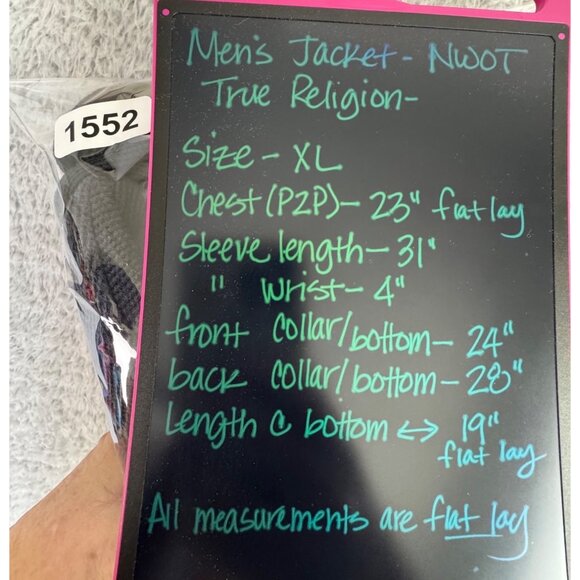 1552
Men's Jacket - NWOT
True Religion-
Size - XL
Chest (P2P) - 23" flat lay
Sleeve length - 31"
" Wrist - 4"
front collar/bottom - 24"
back collar/bottom - 28"
Length @ bottom ↔ 19"
flat lay
All measurements are flat lay